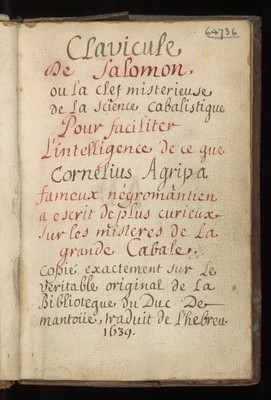 64736
Clavicule
De Salomon,
ou la clef misterieuse
de la science cabalistique
Pour faciliter
L'intelligence de ce que
Cornelius Agripa
fameux négromantien
a escrit de plus curieux
sur les misteres de la
grande Cabale.
Copié exactement sur le
veritable original de la
Biblioteque du Duc De
mantoüe, traduit de l'hebreu
1639.